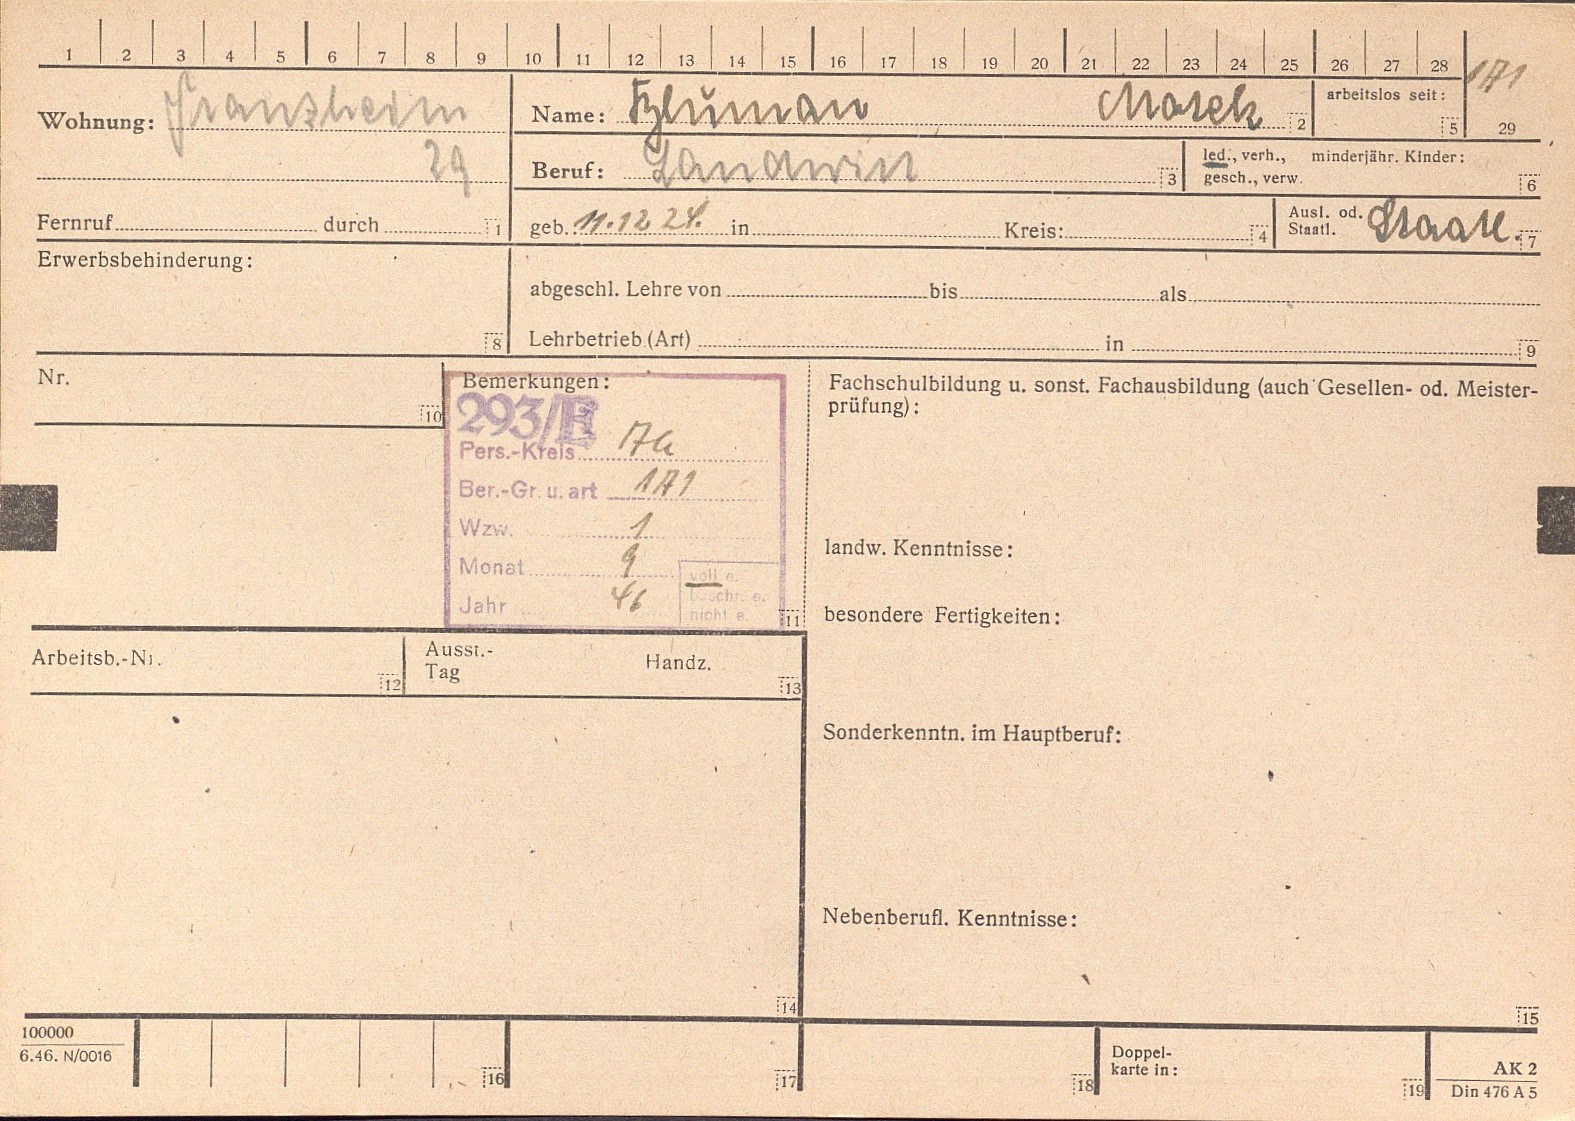 1 2 3 4 5 6 7 8 9 10 11 12 13 14 15 16 17 18 19 20 21 22 23 24 25 26 27 28 1A1
Wohnung: Franzheim
29
Name: Marek 2
arbeitslos seit: 5
29
Beruf: Landwirt 3
led., verh., minderjähr. Kinder:
gesch., verw. 6
Fernruf durch 1
geb. 11.12 24. in Kreis: 4
Ausl. od.
Staatl. Staatl. 7
Erwerbsbehinderung:
8
abgeschl. Lehre von bis als
Lehrbetrieb (Art) in 9
Nr.
10
Bemerkungen:
293/E
Pers.-Kreis
Ber.-Gr. u. art 1A1
Wzw. 1
Monat 9
Jahr 46
voll e.
beschr. e.
nicht e.
11
Fachschulbildung u. sonst. Fachausbildung (auch Gesellen- od. Meister-
prüfung):
landw. Kenntnisse:
besondere Fertigkeiten:
Arbeitsb.-Nr.
12
Ausst.-
Tag
Handz.
13
Sonderkenntn. im Hauptberuf:
Nebenberufl. Kenntnisse:
14
15
100000
6.46. N/0016
16
17
18
Doppel-
karte in:
19
AK 2
Din 476 A 5